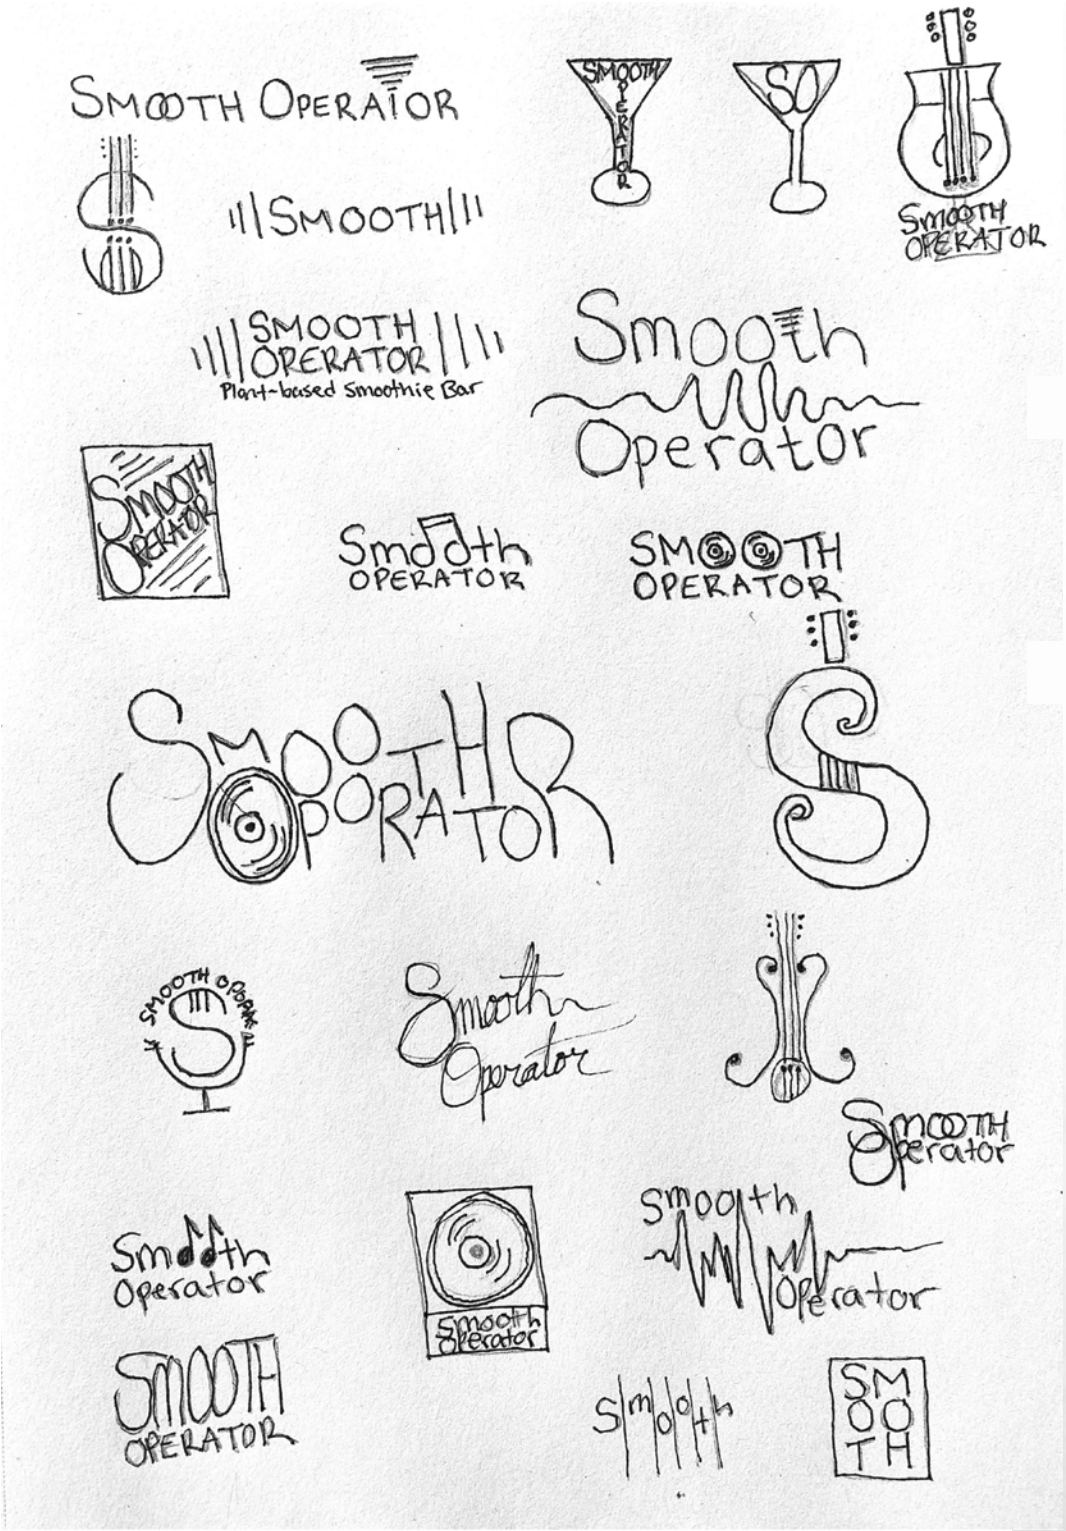 SMOOTH OPERATOR
SMOOTH
OPERATOR
SO
SMOOTH
OPERATOR
SMOOTH
SMOOTH
OPERATOR
Plant-based Smoothie Bar
Smooth
Operator
SMOOTH
OPERATOR
Smooth
OPERATOR
SMOOTH
OPERATOR
SMOOTH
OPORATOR
S
SMOOTH
S
Smooth
Operator
Smooth
Operator
Smooth
Operator
Smooth
Operator
Smooth
Operator
SMOOTH
OPERATOR
Smooth
SM
OO
TH